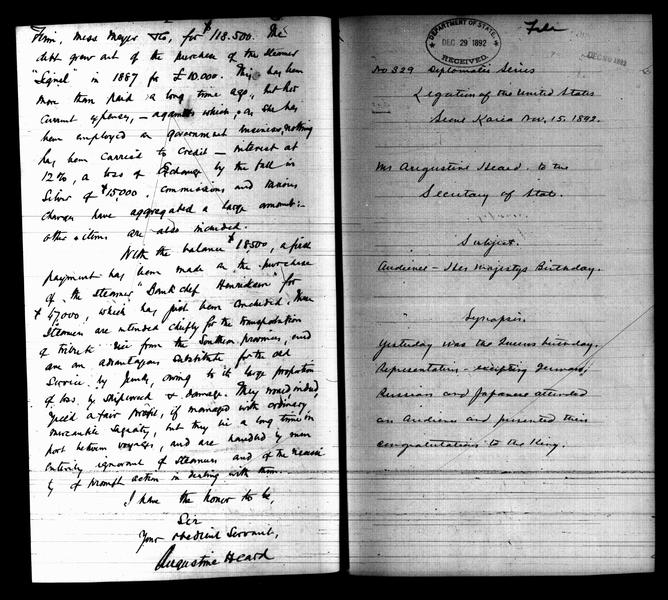 Firm, Mess Meyer & Co, for $118.500. The
debt grew out of the purchase of the steamer
"Signal" in 1887 for £10.000. This has been
more than paid a long time ago, but her
current expenses, – against which, as she has
been employed on government business, nothing
has been carried to credit – interest at
12%, a loss of Exchange by the fall in
Silver of $15,000. commissions and various
charges have aggregated a large amount: –
other items are also included.
With the balance $18,500, a first
payment has been made on the purchase
of the steamer "Bankchef Henridsen" for
$47,000, which has just been concluded. These
Steamers are intended chiefly for the transportation
of tribute rice from the Southern provinces, and
are an advantageous substitute for the old
Service by Junk, owing to its large proportion
of loss by shipwreck & damage. They would indeed
yield a fair profit, if managed with ordinary
mercantile sagacity, but they lie a long time in
port between voyages, and are handled by men
entirely ignorant of steamers and of the necessi-
ty of prompt action in dealing with them.
I have the honor to be,
Sir
Your obedient Servant,
Augustine Heard
DEPARTMENT OF STATE.
DEC 29 1892
RECEIVED.
File
No 329 Diplomatic Series
Legation of the United States
Seoul Korea Nov. 15. 1892.
Mr Augustine Heard to the
Secretary of State.
Subject.
Audience – Her Majestys Birthday.
Synopsis.
Yesterday was the Queens birthday.
Representatives – excepting German,
Russian and Japanese attended
an Audience and presented their
congratulations to the King.